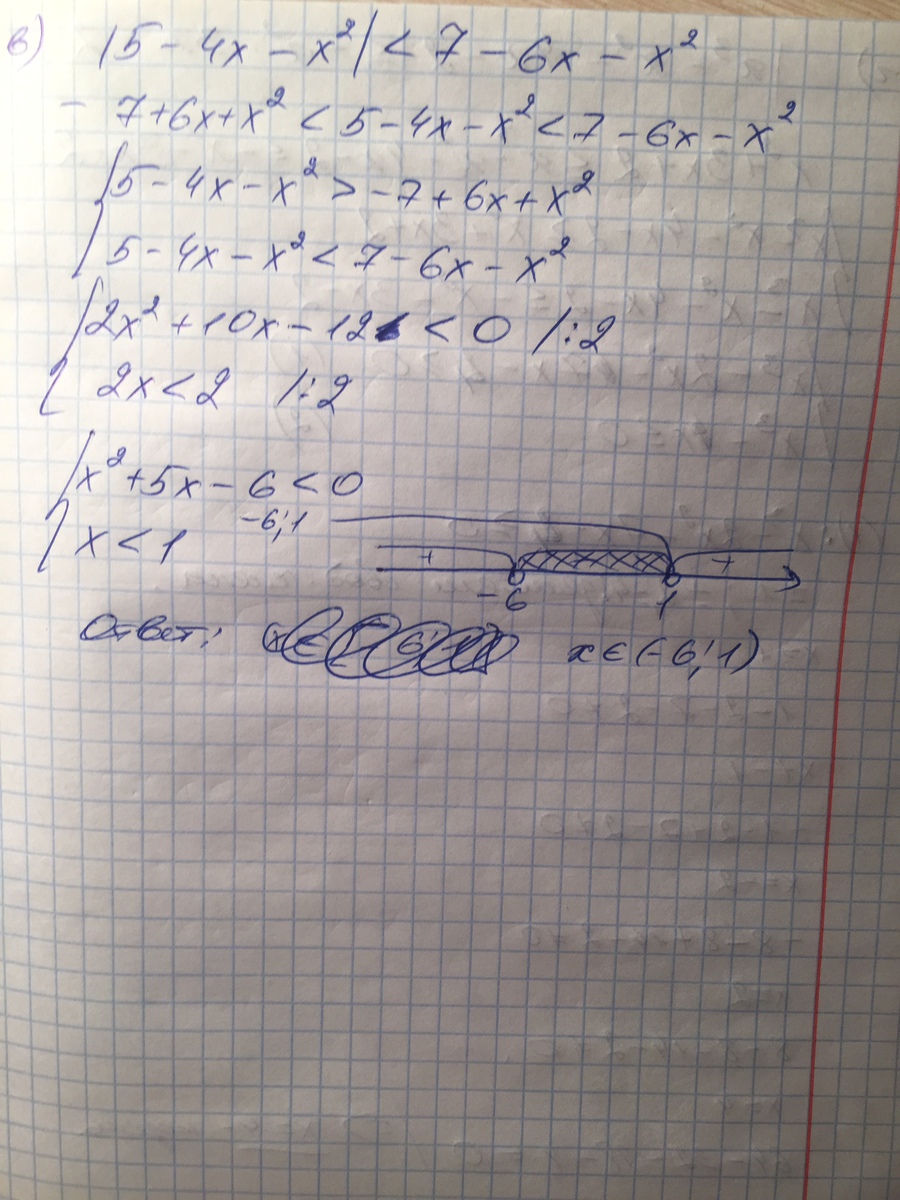 в) |5 - 4x - x²| < 7 - 6x - x²
- 7 + 6x + x² < 5 - 4x - x² < 7 - 6x - x²
{ 5 - 4x - x² > -7 + 6x + x²
5 - 4x - x² < 7 - 6x - x²
{ 2x² + 10x - 12 < 0 /:2
2x < 2 /:2
{ x² + 5x - 6 < 0
x < 1
-6; 1
+ +
-6 1
Ответ: x ∈ (-6; 1)